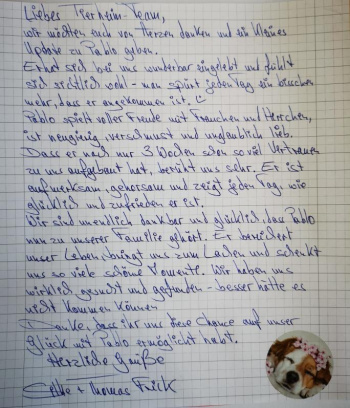 Liebes Tierheim-Team,
wir möchten euch von Herzen danken und ein kleines
Update zu Pablo geben.
Er hat sich bei uns wunderbar eingelebt und fühlt
sich sichtlich wohl - man spürt jeden Tag ein bisschen
mehr, dass er angekommen ist.
Pablo spielt voller Freude mit Frauchen und Herrchen,
ist neugierig, verschmust und unglaublich lieb.
Dass er nach nur 3 Wochen schon so viel Vertrauen
zu uns aufgebaut hat, berührt uns sehr. Er ist
aufmerksam, gehorsam und zeigt jeden Tag, wie
glücklich und zufrieden er ist.
Wir sind unendlich dankbar und glücklich, das Pablo
nun zu unserer Familie gehört. Er bereichert
unser Leben, bringt uns zum Lachen und schenkt
uns so viele schöne Momente. Wir haben uns
wirklich gesucht und gefunden - besser hätte es
nicht kommen können
Danke, dass ihr uns diese Chance auf unser
Glück mit Pablo ermöglicht habt.
Herzliche Grüße
+ Thomas Frick